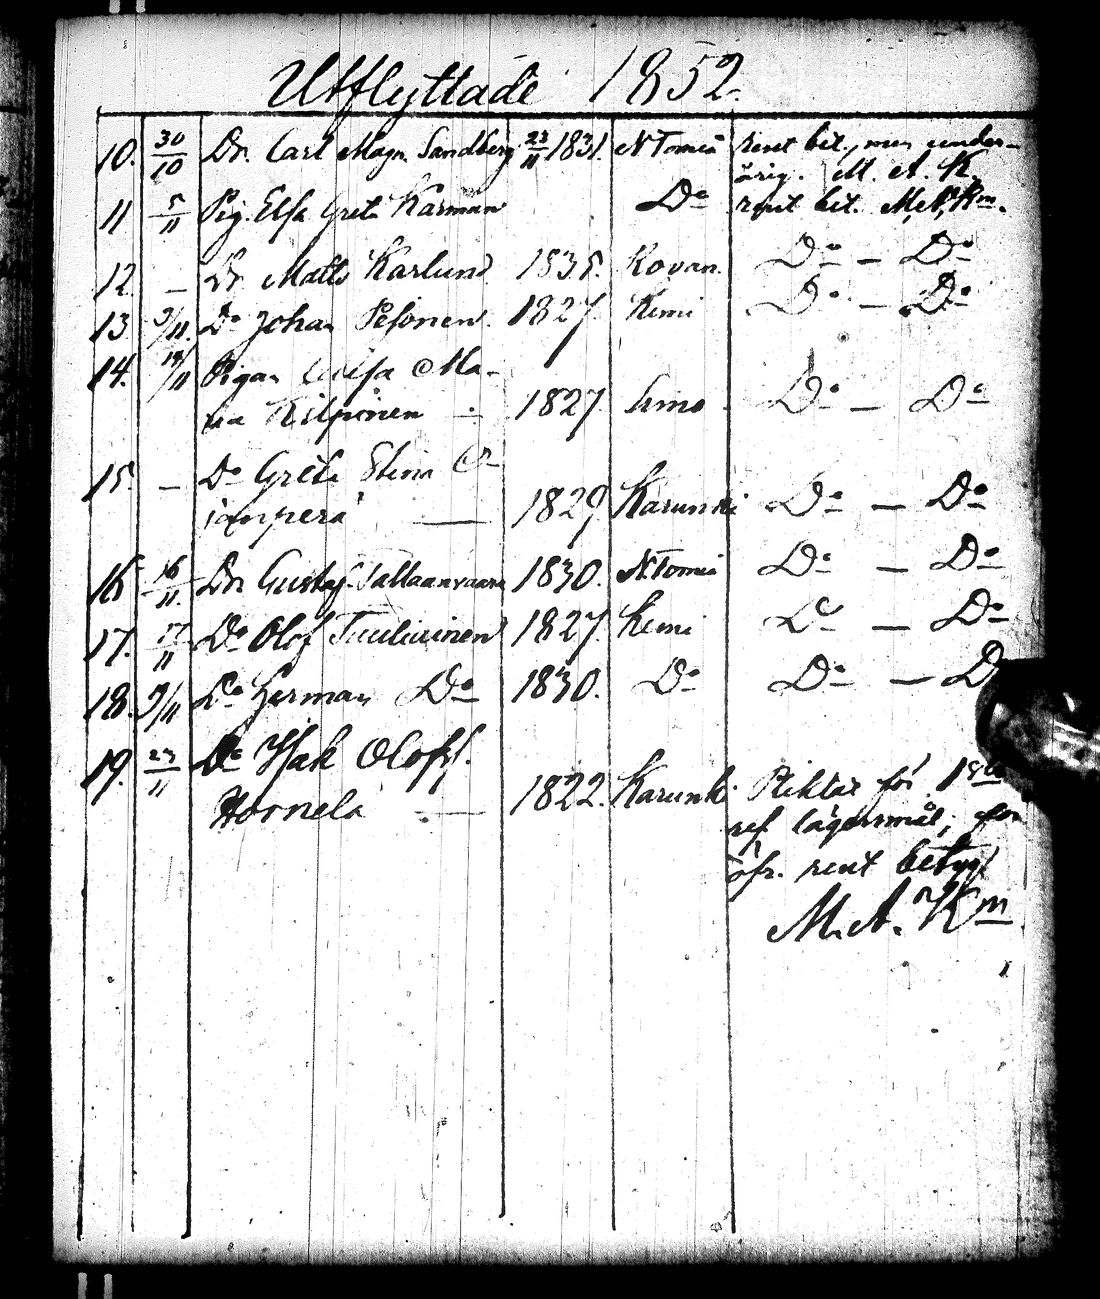 Utflyttade 1852.
10. 30/10 Dr. Carl Magn. Sandberg 23/11 1831. N Torneå rent bet., men under-
årig. M. A. K.
11 5/11 Pig. Elsa Greta Karman Do rent bet. M.A. Km.
12. — Dr. Matts Karlund 1835. Rovan. Do — Do
13. 9/11. Do Johan Pesonen. 1827. Kemi Do — Do
14. 14/11 Pigan Ma-
ria Kilponen — 1827 Simo Do — Do
15. — Do Greta Stina O-
janperä — 1829 Karunki Do — Do
16 16/11. Dr. Gustaf Tallaanvaara 1830. N Torneå Do — Do
17. 17/11 Do Olof Tuuliainen 1827. Kemi Do — Do
18. 9/11 Do Herman Do 1830. Do Do — D
19. 23/11 Do Isak Olofss.
Hornela — 1822. Karunki Pliktat för 1sta
res. lägersmål, för
öfr. rent betyg
M. A. Km